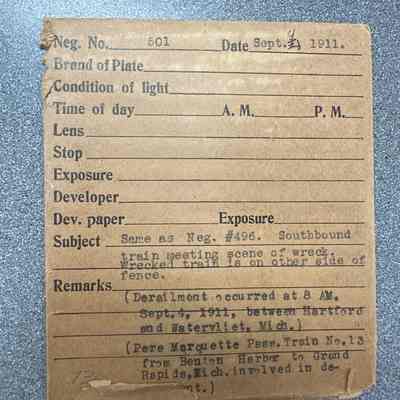 Neg. No. 501 Date Sept. 4, 1911.
Brand of Plate
Condition of light
Time of day A. M. P. M.
Lens
Stop
Exposure
Developer
Dev. paper Exposure
Subject Same as Neg. #496. Southbound
train meeting scene of wreck.
Wrecked train is on other side of
fence.
Remarks
(Derailment occurred at 8 AM,
Sept.4, 1911, between Hartford
and Watervliet, Mich.)
(Pere Marquette Pass. Train No.13
from Benton Harbor to Grand
Rapids,Mich.involved in de-
nt.)